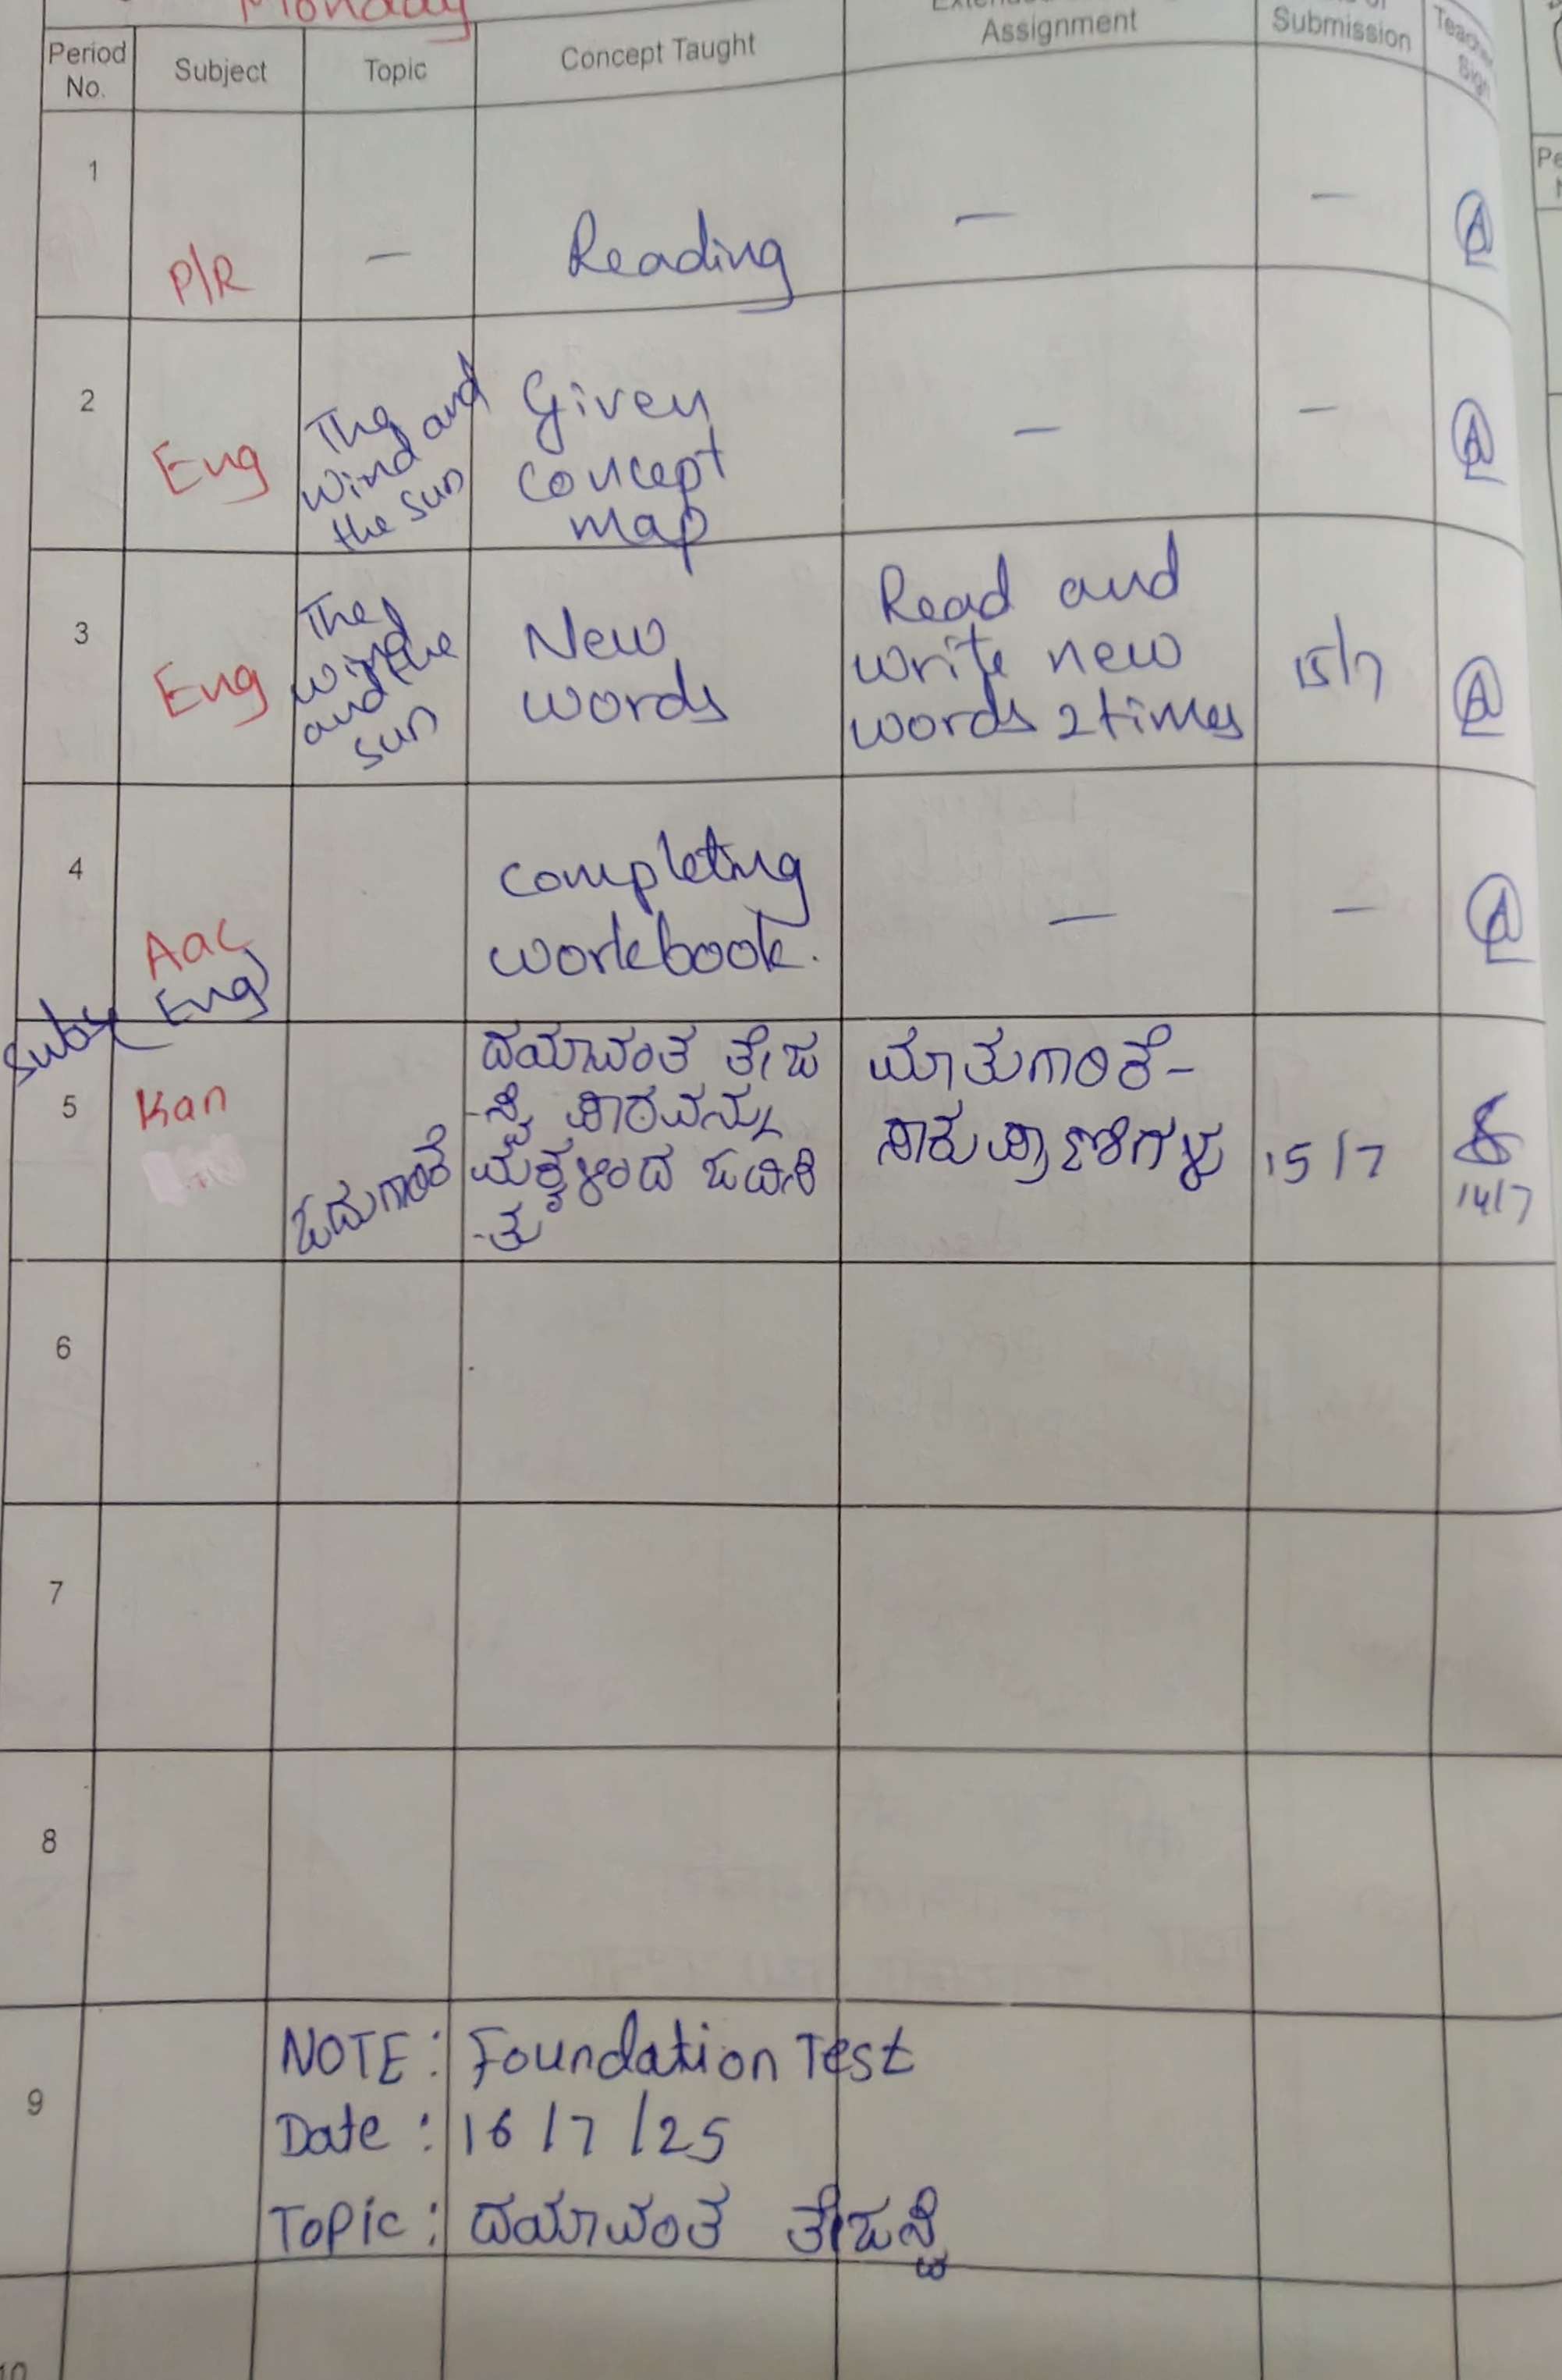 Monday
Period No.
Subject
Topic
Concept Taught
Assignment
Submission
Teacher Sign
1
P/R
—
Reading
—
—
2
Eng
The wind and the sun
Given
concept
map
—
—
3
Eng
The wind and the sun
New
words
Read and
write new
words 2 times
15/7
4
Aac
Eng
completing
workbook.
—
—
5
Kan
ಓದುಗಾರಿಕೆ
ದಯಾವಂತ ತೇಜ
-ಸ್ವಿ ಪಾಠವನ್ನು
ಮಕ್ಕಳಿಂದ ಓದಿಸಿ
-ತು
ಮಾತುಗಾರಿಕೆ-
ಸಾಕುಪ್ರಾಣಿಗಳು
15/7
14/7
6
7
8
9
NOTE: Foundation Test
Date: 16/7/25
Topic: ದಯಾವಂತ ತೇಜಸ್ವಿ
10